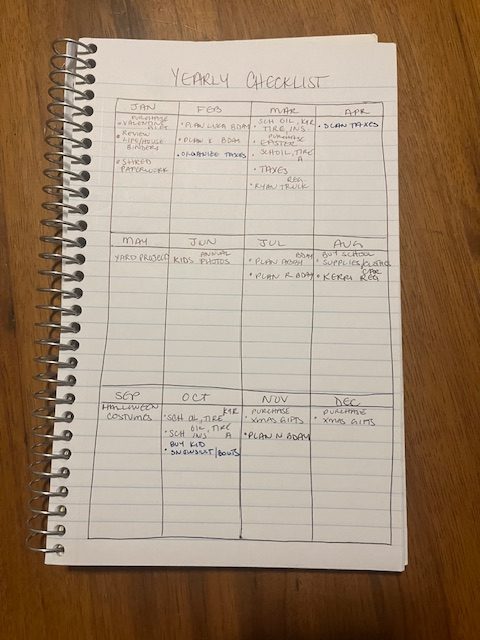 YEARLY CHECKLIST
JAN
PURCHASE
• VALENTINE
• REVIEW
LIFE/HOUSE
BINDERS
• SHRED
PAPERWORK
FEB
• PLAN LUKA BDAY
• PLAN K BDAY
• ORGANIZE TAXES
MAR
SCH OIL, K&R
• TIRE, INS
PURCHASE
• EASTER
• SCH OIL, TIRE
A
• TAXES
REG
• RYAN TRUCK
APR
• PLAN TAXES
MAY
YARD PROJECT
JUN
ANNUAL
KIDS PHOTOS
JUL
BDAY
• PLAN
• PLAN R BDAY
AUG
BUY SCHOOL
• SUPPLIES/CLOTHES
CAR
• KERRI REG
SEP
HALLOWEEN
COSTUMES
OCT
K&R
• SCH OIL, TIRE
OIL, TIRE
• SCH INS A
BUY KID
• SNOWSUIT/BOOTS
NOV
PURCHASE
• XMAS GIFTS
• PLAN N BDAY
DEC
PURCHASE
• XMAS GIFTS